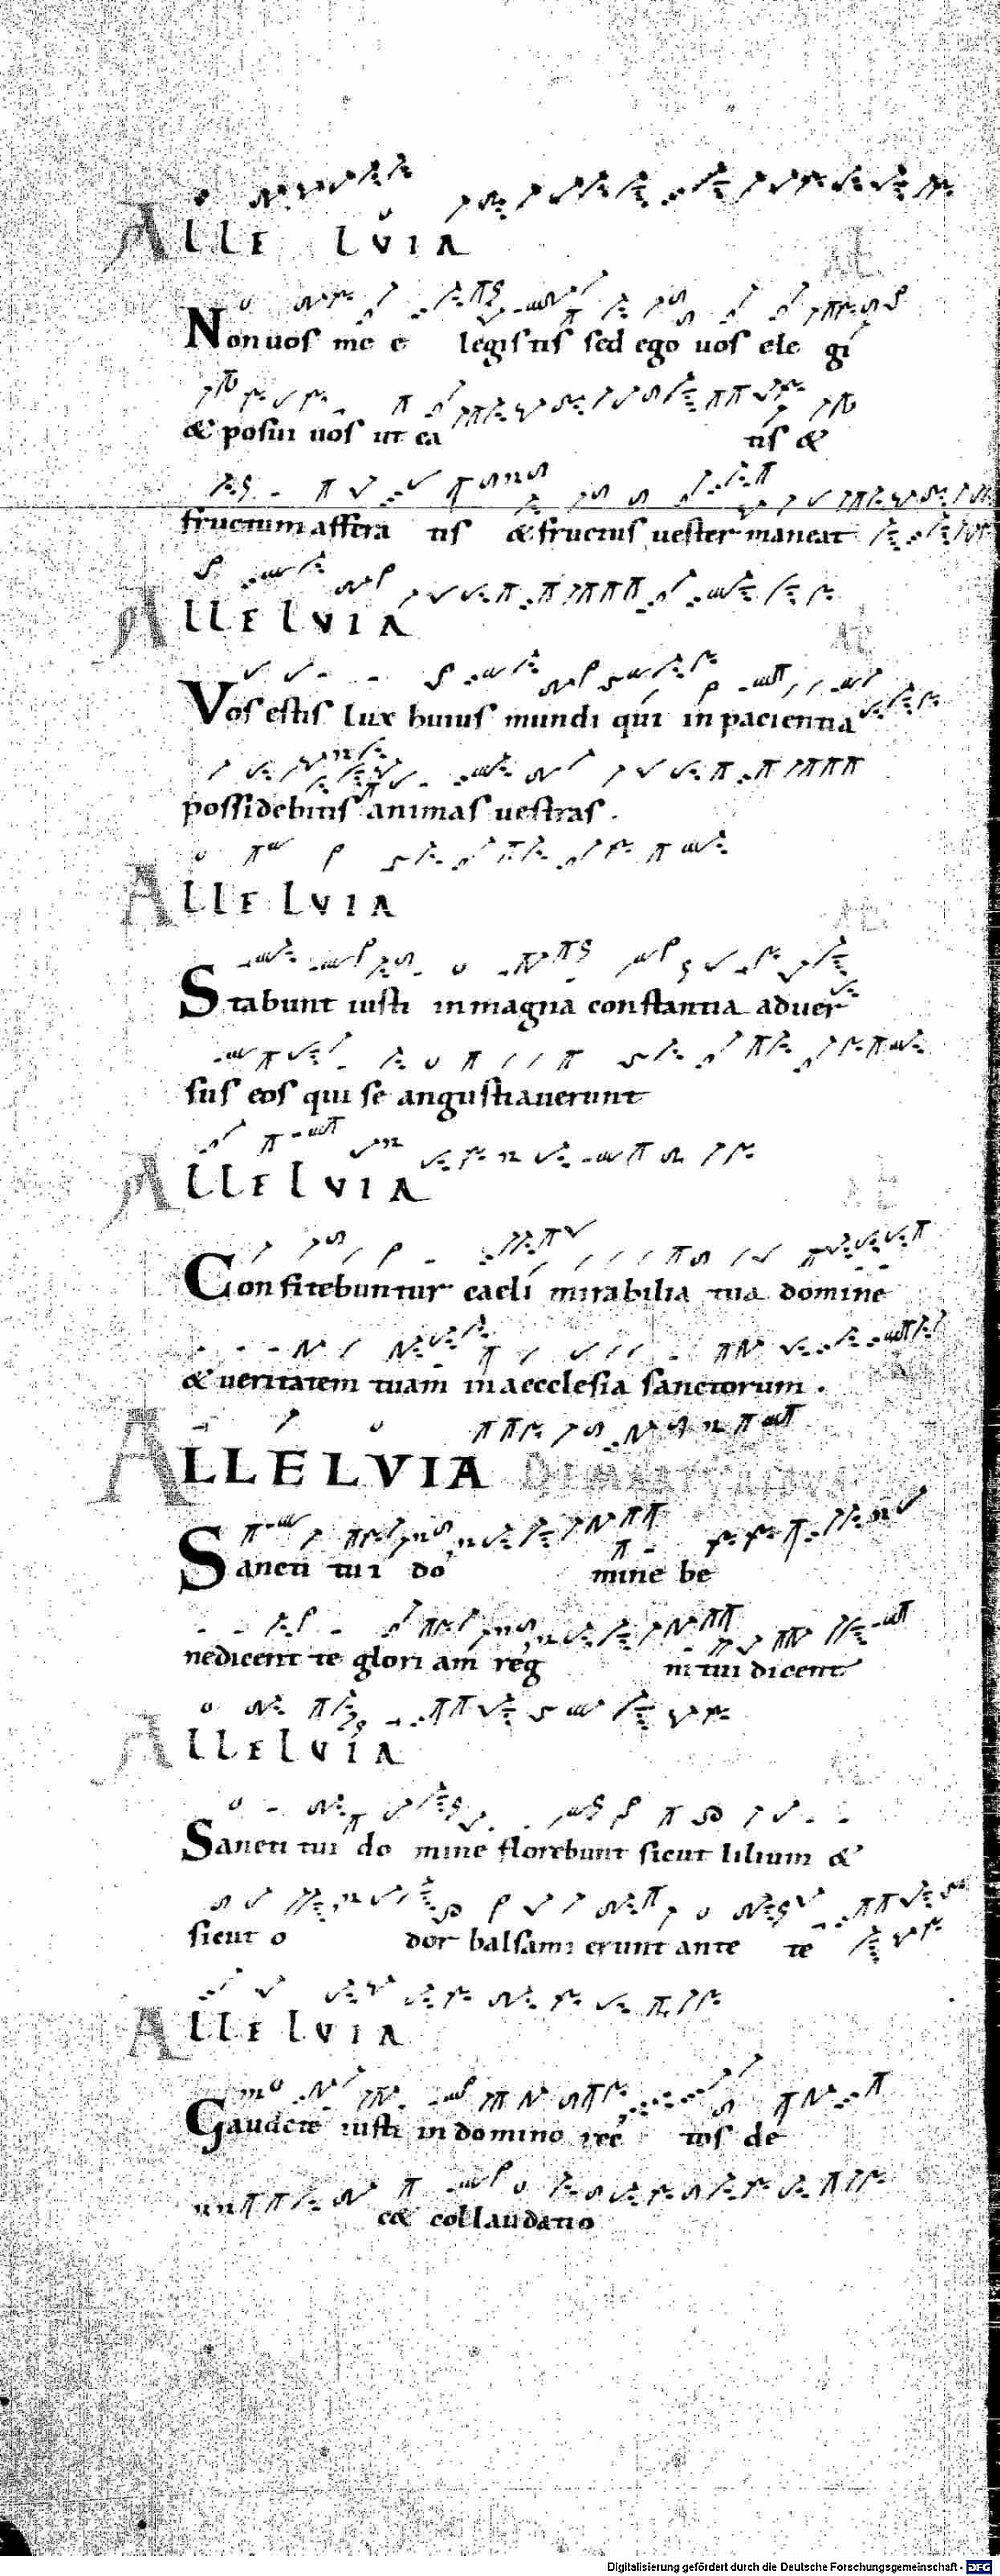 ALLE LVIA
AL
Non uos me e legistis sed ego uos ele gi
& posui uos ut ea tis &
fructum affera tis & fructus uester maneat
ALLELVIA
Vos estis lux huius mundi qui in pacientia
possidebitis animas uestras.
ALLELVIA
AL
Stabunt iusti in magna constantia aduer
sus eos qui se angustiauerunt
ALLELVIA
AL
Confitebuntur caeli mirabilia tua domine
& ueritatem tuam in aecclesia sanctorum.
ALLELVIA
Sancti tui do mine be
nedicent te glori am reg ni tui dicent
ALLELVIA
Sancti tui do mine florebunt sicut lilium &
sicut o dor balsami erunt ante te
ALLELVIA
Gaudete iusti in domino rec tos de
c& collaudatio
Digitalisierung gefördert durch die Deutsche Forschungsgemeinschaft - DFG